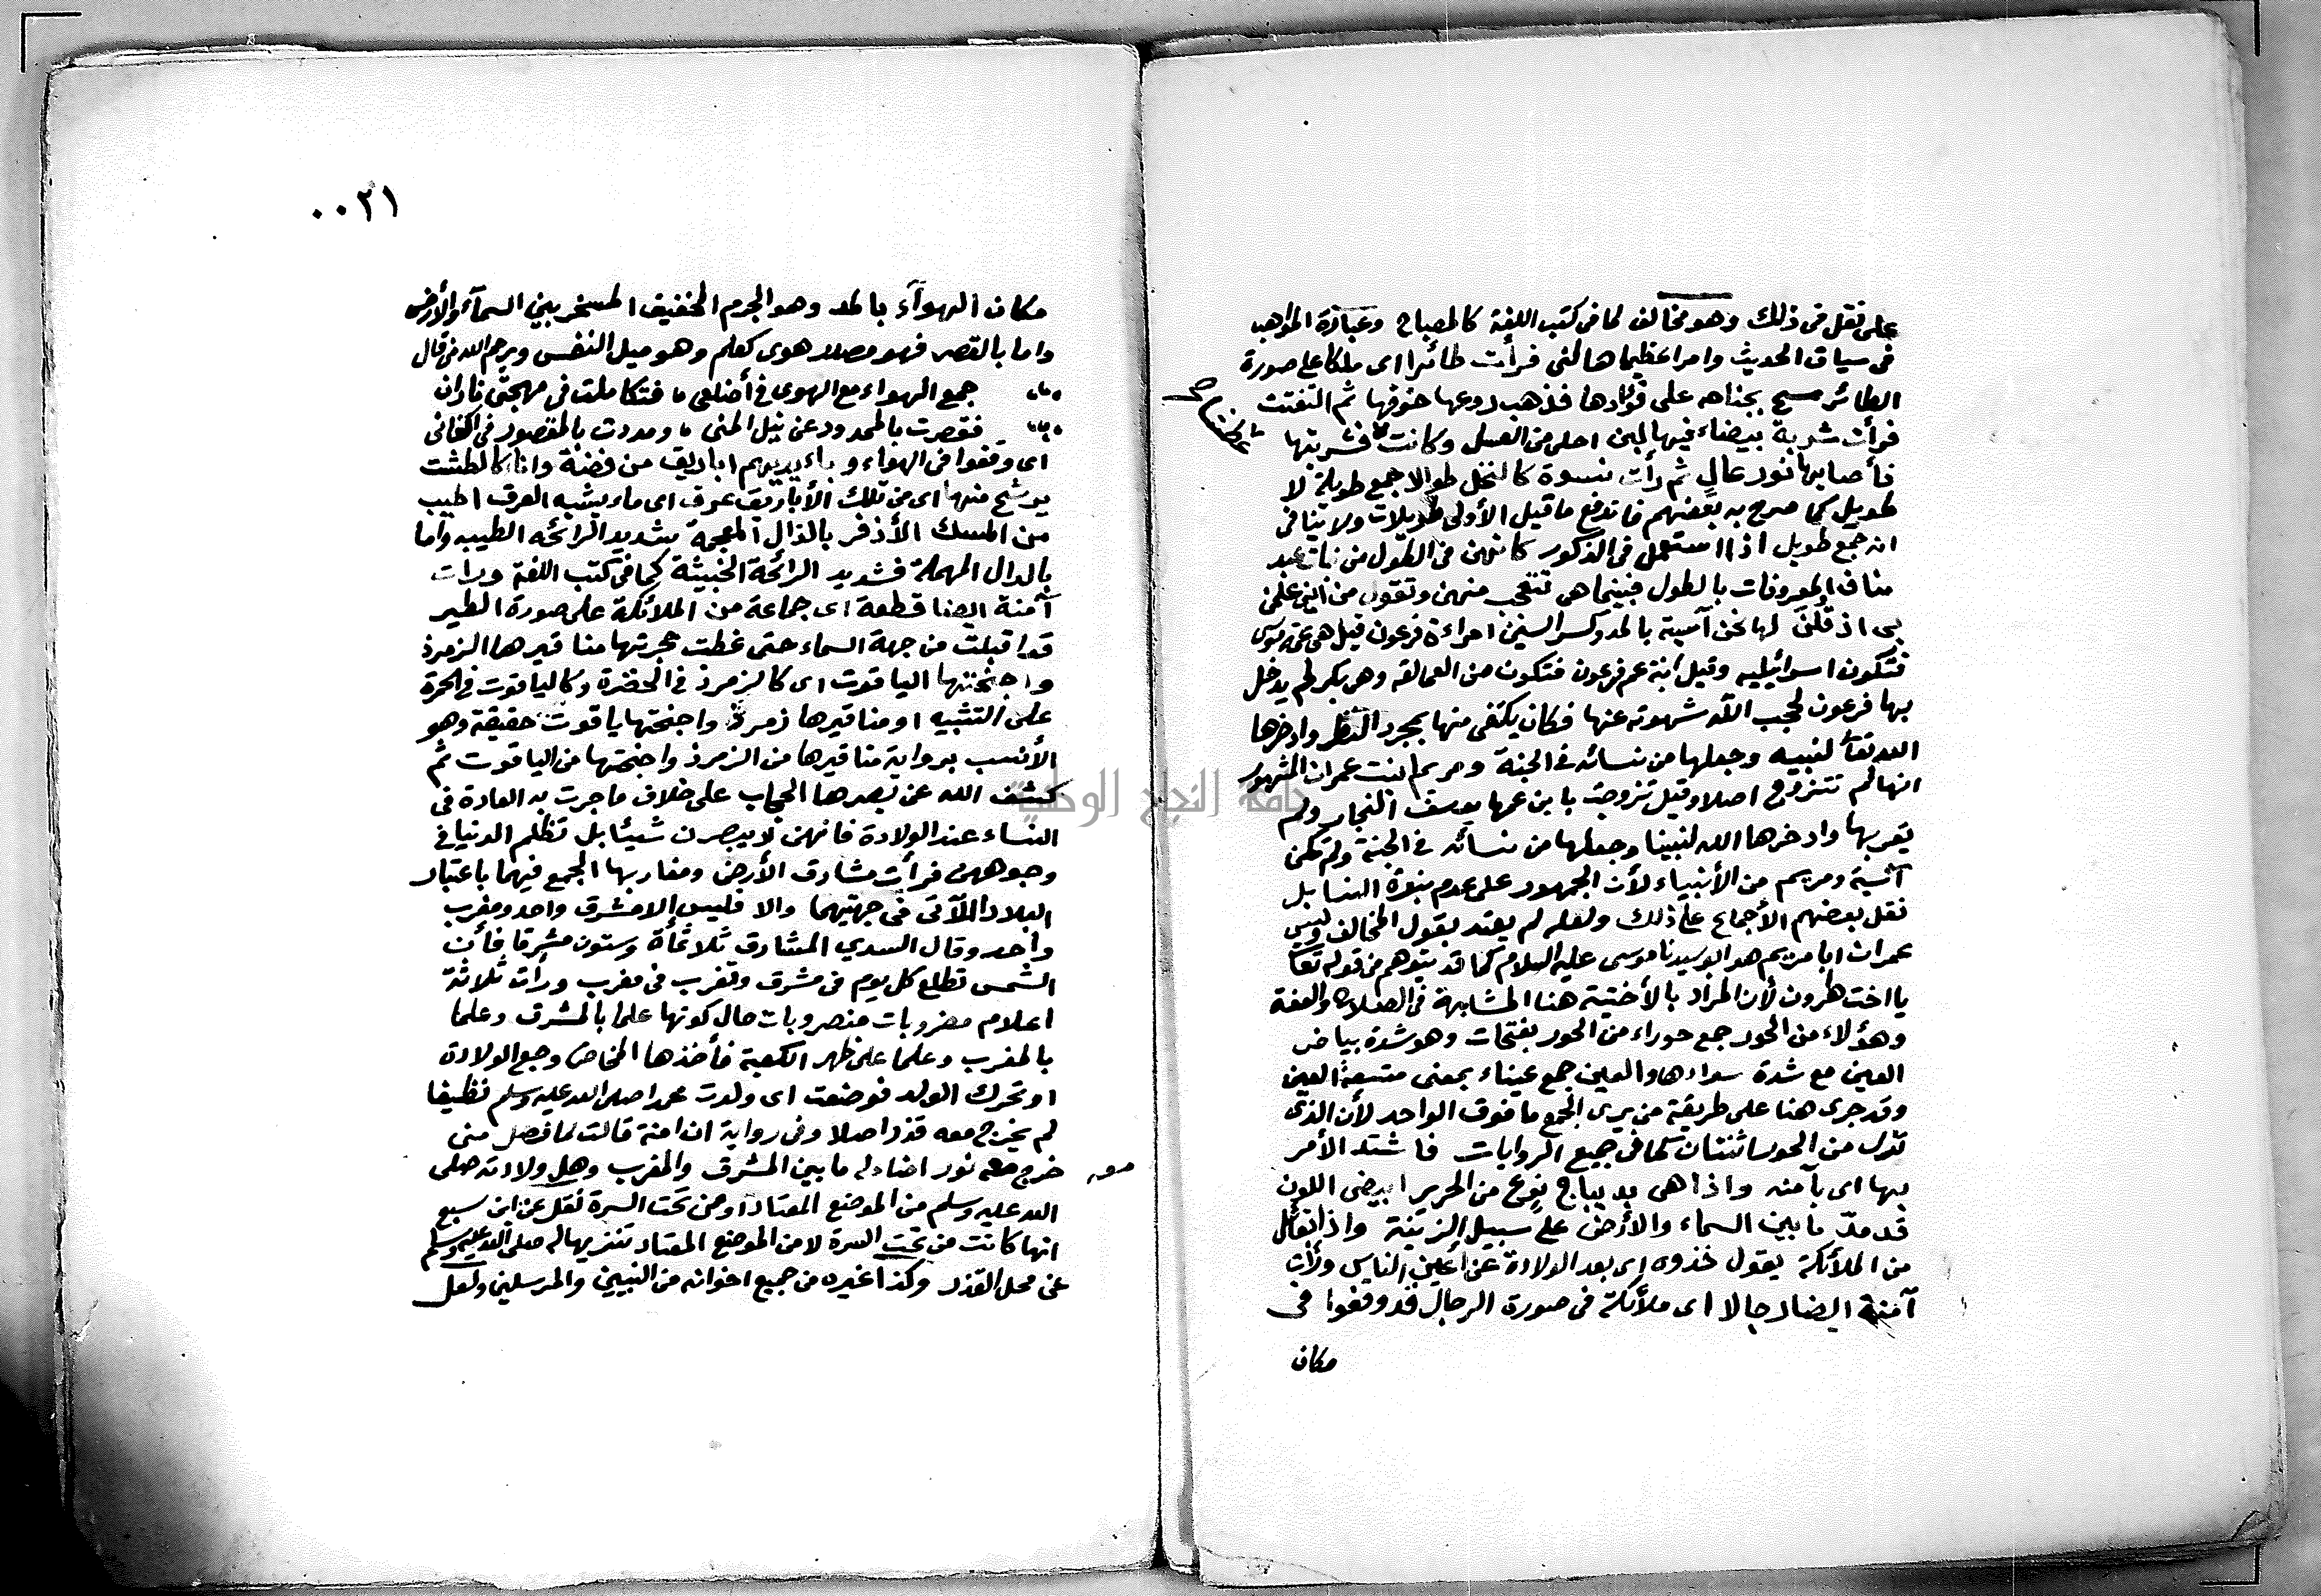 على نقل في ذلك وهو مخالف لما في كتب اللغة كالمصباح وعبارة المواهب
في سياق الحديث وامرا عظيما هالني فرأت طائرا اى ملكا على صورة
الطائر مسح بجناحه على فؤادها فذهب روعها خوفها ثم التفتت
فرأت شربة بيضاء فيها لبن احلى من العسل وكانت فشربتها
فأصابها نور عالٍ ثم رأت نسوة كالنخل طوالا جمع طويلة لا
طويل كما صرح به بعضهم فاندفع ما قيل الأولى طويلات ولا ينافي
انه جمع طويل اذا استعمل في الذكور كانهن في الطول من بنات عبد
مناف المعروفات بالطول فبينما هى تتعجب منهن وتقول من اين علمن
بى اذ قلن لها نحن آسية بالمد وكسر السين امراءة فرعون قيل هى عمة موسى
فتكون اسرائيليه وقيل ابنة عم فرعون فتكون من العمالقه وهى بكر لم يدخل
بها فرعون لحجب الله شهوته عنها فكان يكتفى منها بمجرد النظر وادخرها
الله تعا لنبيه وجعلها من نسائه في الجنة ومريم ابنت عمران المشهور
انها لم تتزوج اصلا وقيل تزوجت بابن عمها يوسف النجار ولم
يقربها وادخرها الله لنبينا وجعلها من نسائه في الجنة ولم تكن
آسية ومريم من الأنبياء لأن الجمهور على عدم نبوة النسا بل
نقل بعضهم الأجماع على ذلك ولعله لم يعتد بقول المخالف وليس
عمران ابا مريم هو ابو سيدنا موسى عليه السلام كما قد يتوهم من قوله تعا
يا اخت هرون لأن المراد بالأختية هنا المشابهة في الصلاح والعفة
وهؤلاء من الحور جمع حوراء من الحور بفتحات وهو شدة بياض
العين مع شدة سوادها والعين جمع عيناء بمعنى متسعة العين
وقد جرى هنا على طريقة من يرى الجمع ما فوق الواحد لأن الذى
نزل من الحور اثنتان كما في جميع الروايات فاشتد الأمر
بها اى بآمنه واذا هى بديباج نوع من الحرير ابيض اللون
قد مدّ ما بين السماء والأرض على سبيل الزينة واذا بقائل
من الملأئكة يقول خذوه اى بعد الولادة عن أعين الناس ورأت
آمنة ايضا رجالا اى ملأئكة في صورة الرجال قد وقفوا في
مكان
٠٠٢١
مكان الهوآء بالمد وهو الجرم الخفيف المسخر بين السمآء والأرض
واما بالقصر فهو مصدر هوى كعلم وهو ميل النفس ويرحم الله من قال
جمع الهواء مع الهوى في أضلعى ، فتكاملت في مهجتى ناران
فقصرت بالممدود عن نيل المنى ، ومددت بالمقصور في اكفانى
اى وقفوا في الهواء وباءيديهم اباريق من فضة وانا كالطشت
يرشح منها اى من تلك الأباريق عرق اى ماء يشبه العرق اطيب
من المسك الأذفر بالذال المعجمة شديد الرائحه الطيبه واما
بالدال المهملة فشديد الرائحة الخبيثة كما في كتب اللغة ورات
آمنة ايضا قطعة اى جماعة من الملائكة على صورة الطير
قد اقبلت من جهة السماء حتى غطت حجرتها مناقيرها الزمرذ
واجنحتها الياقوت اى كالزمرذ في الخضرة وكالياقوت في الحمرة
على التشبيه او مناقيرها زمرذ واجنحتها ياقوت حقيقة وهو
الأنسب برواية مناقيرها من الزمرذ واجنحتها من الياقوت ثم
كشف الله عن بصرها الحجاب على خلاف ما جرت به العادة في
النساء عند الولادة فانهن لا يبصرن شيئا بل تظلم الدنيا في
وجوههن فرأت مشارق الأرض ومغاربها الجمع فيهما باعتبار
البلاد اللآتى في جهتيهما والا فليس الا مشرق واحد ومغرب
واحد وقال السدي المشارق ثلاثمأة وستون مشرقا فأن
الشمس تطلع كل يوم في مشرق وتغرب في مغرب ورأت ثلاثة
اعلام مضروبات منصوبات حال كونها علما بالمشرق وعلما
بالمغرب وعلما على ظهر الكعبة فأخذها المخاض وجع الولادة
او تحرك الولد فوضعت اى ولدت محمدا صلى الله عليه وسلم نظيفا
لم يخرج معه قذر اصلا وفي رواية ان امنة قالت لما فصل منى
خرج معه نور اضاء له ما بين المشرق والمغرب وهل ولادته صلى
الله عليه وسلم من الموضع المعتاد او من تحت السرة نقل عن ابن سبع
انها كانت من تحت السرة لا من الموضع المعتاد تنزيها له صلى الله عليه وسلم
عن محل القذر وكذا غيره من جميع اخوانه من النبيين والمرسلين ولعل
جامعة النجاح الوطنية